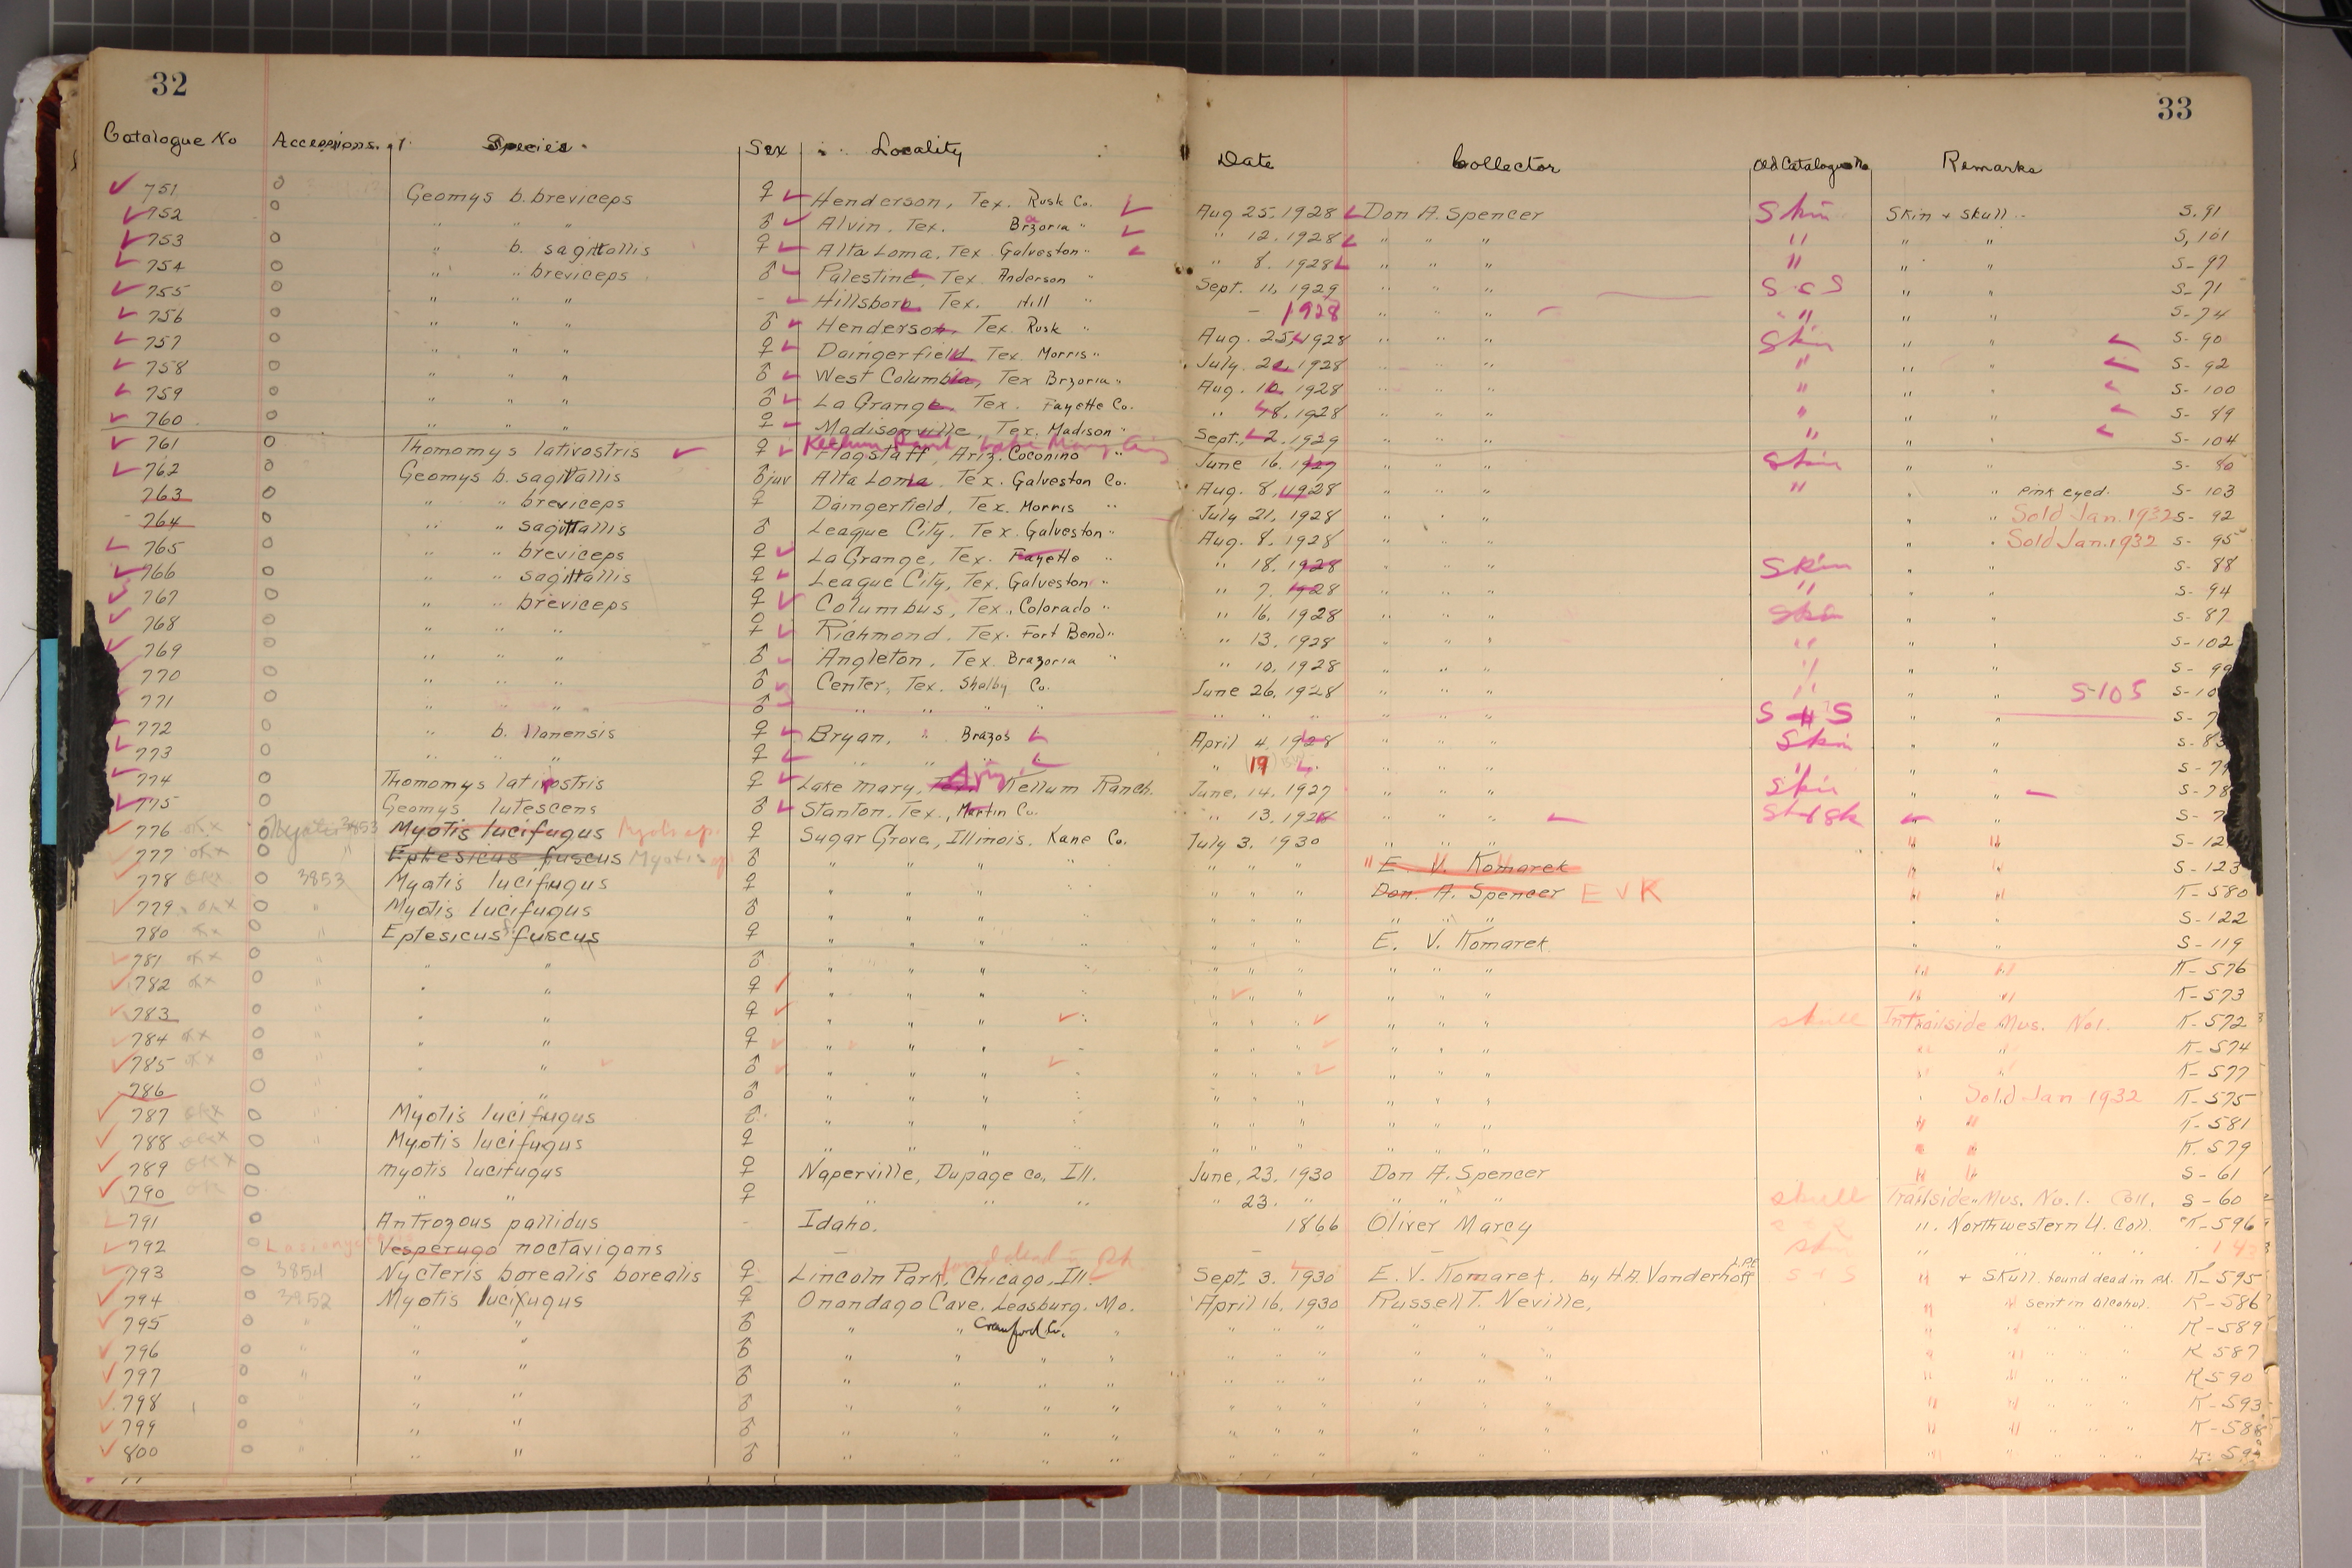 32
33
Catalogue No Accessions. Species. Sex Locality Date Collector Old Catalogue No Remarks
751 O Geomys b. breviceps ♀ Henderson, Tex. Rusk Co. Aug 25, 1928 Don A. Spencer Skin Skin + Skull S. 91
752 O " " " ♂ Alvin, Tex. Brzoria " " 12, 1928 " " " " " " S, 101
753 O " b. sagittallis ♀ Alta Loma, Tex Galveston " " 8. 1928 " " " " " " S- 97
754 O " " breviceps ♂ Palestine, Tex. Anderson " Sept. 11, 1929 " " " S & S " " S- 71
755 O " " " - Hillsboro, Tex. Hill " - 1928 " " " " " " S- 74
756 O " " " ♂ Henderson, Tex. Rusk " Aug. 25, 1928 " " " Skin " " S- 90
757 O " " " ♀ Daingerfield, Tex. Morris " July 21, 1928 " " " " " " S- 92
758 O " " " ♂ West Columbia, Tex Brzoria " Aug. 10, 1928 " " " " " " S- 100
759 O " " " ♂ La Grange, Tex. Fayette Co. " 18, 1928 " " " " " " S- 89
760 O " " " ♀ Madisonville, Tex. Madison " Sept. 2, 1929 " " " " " " S- 104
761 O Thomomys lativostris ♀ Flagstaff, Ariz. Coconino " June 16, 1927 " " " Skin " " S- 80
762 O Geomys b. sagittallis ♂ juv Alta Loma, Tex. Galveston Co. Aug. 8, 1928 " " " " " " Pink eyed. S- 103
763 O " " breviceps ♀ Daingerfield, Tex. Morris " July 21, 1928 " " " " " Sold Jan. 1932 S- 92
764 O " " sagittallis ♂ League City, Tex Galveston " Aug. 8, 1928 " " " " " Sold Jan. 1932 S- 95
765 O " " breviceps ♀ La Grange, Tex. Fayette " " 18, 1928 " " " Skin " " S- 88
766 O " " sagittallis ♀ League City, Tex. Galveston " " 7, 1928 " " " " " " S- 94
767 O " " breviceps ♀ Columbus, Tex., Colorado " " 16, 1928 " " " Skin " " S- 87
768 O " " " ♀ Richmond, Tex. Fort Bend " " 13, 1928 " " " " " " S- 102
769 O " " " ♂ Angleton, Tex. Brazoria " " 10, 1928 " " " " " " S- 99
770 O " " " ♂ Center, Tex. Shelby Co. June 26, 1928 " " " " " " S-105
771 O " " " ♂ " " " " " " " " " " S & S " "
772 O " b. llanensis ♀ Bryan, " Brazos April 4, 1928 " " " Skin " " S- 83
773 O " " " ♀ " " " " 19 " " " " " " S- 79
774 O Thomomys latirostris ♀ Lake Mary, Ariz. Kellum Ranch. June, 14, 1927 " " " Skin " " S- 78
775 O Geomys lutescens ♂ Stanton, Tex., Martin Co. " 13, 192 " " " " "
776 OKX O 3853 Myotis lucifugus Myotis sp. ♀ Sugar Grove, Illinois. Kane Co. July 3, 1930 " " " " "
777 OKX O " Eptesicus fuscus Myotis sp ♂ " " " " " " " " E. V. Komarek " " S- 123
778 OKX O 3853 Myotis lucifugus ♀ " " " " " " " Don. A. Spencer E V K " " K- 580
779 OKX O " Myotis lucifugus ♂ " " " " " " " " " " " " S- 122
780 OKX O " Eptesicus fuscus ♀ " " " " " " " E. V. Komarek " " S- 119
781 OKX O " " " ♂ " " " " " " " " " " " " K- 576
782 OKX O " " " ♀ " " " " " " " " " " " " K- 573
783 O " " " ♀ " " " " " " " " " " skull In Trailside Mus. No1. K- 572
784 OKX O " " " ♀ " " " " " " " " " " " " K- 574
785 OKX O " " " ♂ " " " " " " " " " " " " K- 577
786 O " " " ♂ " " " " " " " " " " " Sold Jan 1932 K- 575
787 OKX O " Myotis lucifugus ♂ " " " " " " " " " " " " K- 581
788 OKX O " Myotis lucifugus ♀ " " " " " " " " " " " " K- 579
789 OKX O Myotis lucifugus ♀ Naperville, Dupage Co., Ill. June, 23, 1930 Don A. Spencer " " S- 61
790 OK O " " ♀ " " " " 23. " " " " skull Trailside Mus. No. 1. Coll. S- 60
791 O Antrozous pallidus - Idaho. 1866 Oliver Marcy " Northwestern U. Coll. K- 596
792 O Vesperugo noctavigans — — — "
793 O 3854 Nycteris borealis borealis ♀ Lincoln Park, Chicago, Ill. found dead in Pk Sept. 3. 1930 E. V. Komarek. by H.A. Vanderhoff S + S " + Skull. found dead in Pk. K- 595
794 O 3852 Myotis lucifugus ♀ Onandago Cave, Leasburg, Mo. April 16, 1930 Russell T. Neville, " " sent in alcohol. K- 586
795 O " " " ♂ " " Crawford Co. " " " " " " " " " K- 589
796 O " " " ♂ " " " " " " " " " " " " K 587
797 O " " " ♂ " " " " " " " " " " " " K 590
798 O " " " ♂ " " " " " " " " " " " " K- 593
799 O " " " ♂ " " " " " " " " " " " " K- 588
800 O " " " ♂ " " " " " " " " " " " "